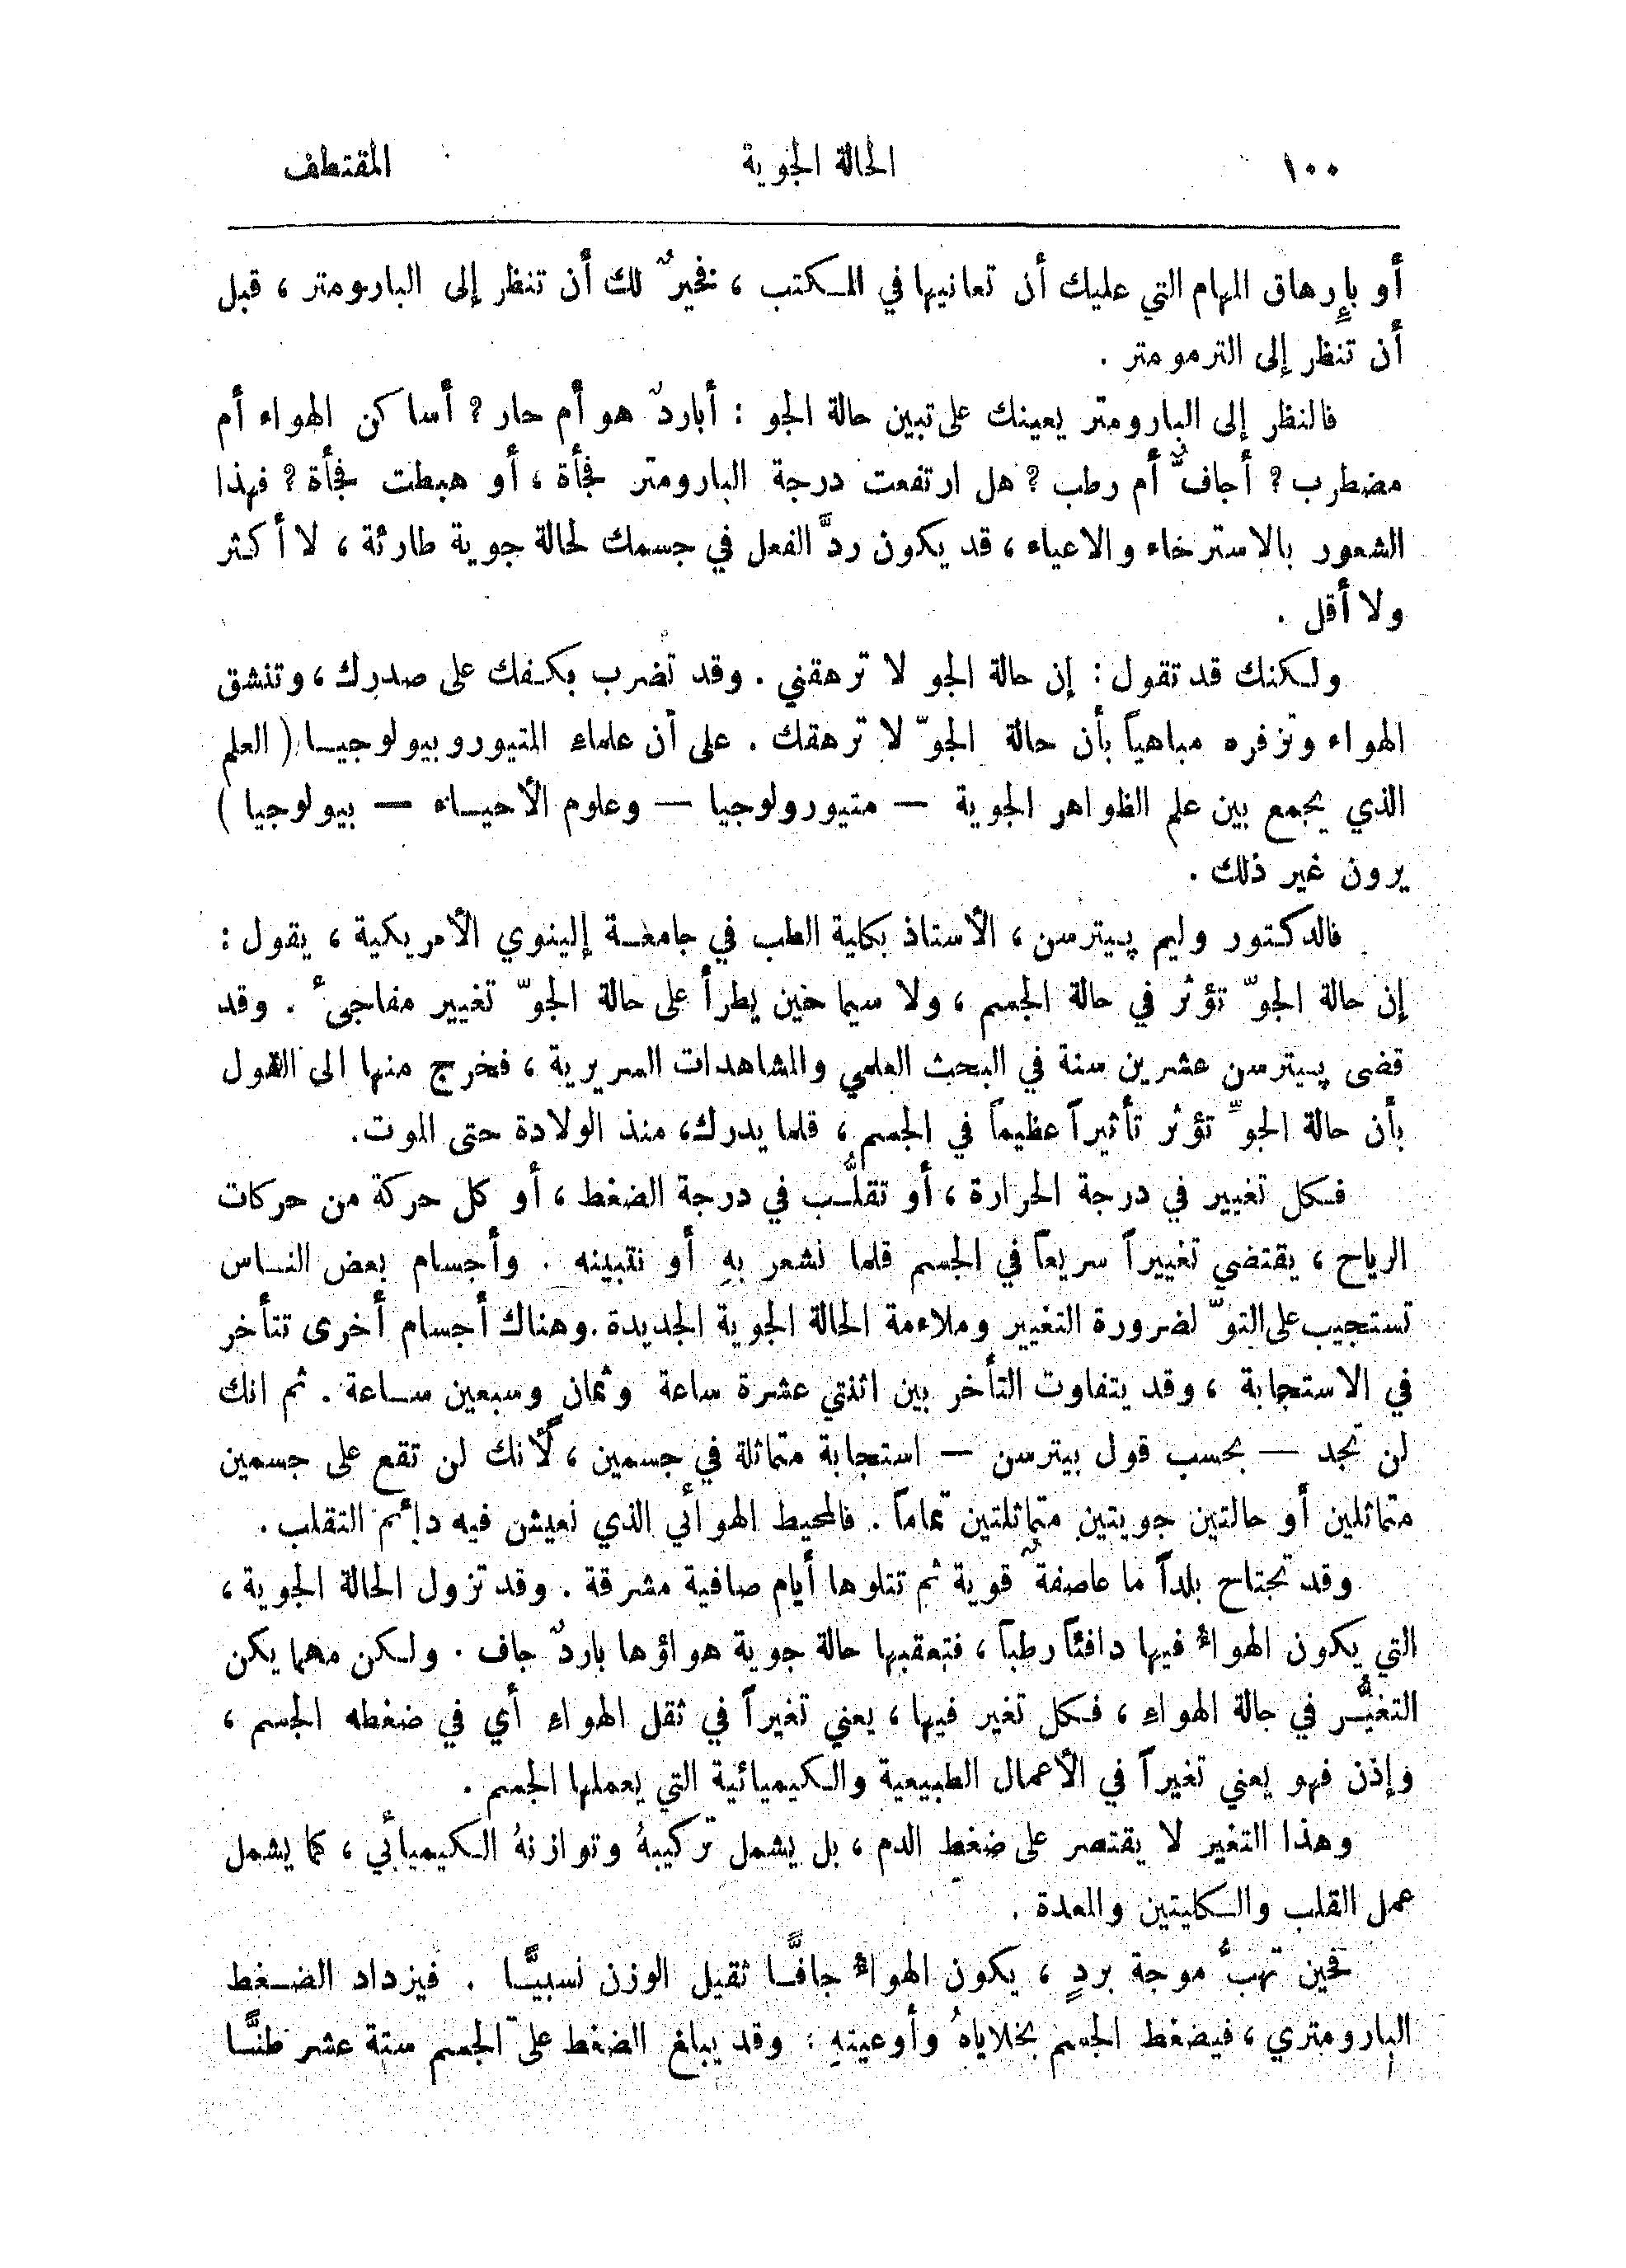 ١٠٠ الحالة الجوية المقتطف
أو بإرهاق المهام التي عليك أن تعانيها في المكتب ، فخيرٌ لك أن تنظر إلى البارومتر ، قبل
أن تنظر إلى الترمومتر .
فالنظر إلى البارومتر يعينك على تبين حالة الجو : أباردٌ هو أم حار ؟ أساكن الهواء أم
مضطرب ؟ أجافٌّ أم رطب ؟ هل ارتفعت درجة البارومتر فجأة ، أو هبطت فجأة ؟ فهذا
الشعور بالاسترخاء والاعياء ، قد يكون ردَّ الفعل في جسمك لحالة جوية طارئة ، لا أكثر
ولا أقل .
ولكنك قد تقول : إن حالة الجو لا ترهقني . وقد تضرب بكفك على صدرك ، وتنشق
الهواء وتزفره مباهياً بأن حالة الجوّ لا ترهقك . على أن علماء المتيوروبيولوجيا ( العلم
الذي يجمع بين علم الظواهر الجوية — متيورولوجيا — وعلوم الأحياء — بيولوجيا )
يرون غير ذلك .
فالدكتور وليم پيترسن ، الأستاذ بكلية الطب في جامعة إلينوي الأمريكية ، يقول :
إن حالة الجوّ تؤثر في حالة الجسم ، ولا سيما حين يطرأ على حالة الجوّ تغيير مفاجىء . وقد
قضى پيترسن عشرين سنة في البحث العلمي والمشاهدات السريرية ، فخرج منها الى القول
بأن حالة الجوِّ تؤثر تأثيراً عظيماً في الجسم ، قلما يدرك ، منذ الولادة حتى الموت .
فكل تغيير في درجة الحرارة ، أو تقلُّب في درجة الضغط ، أو كل حركة من حركات
الرياح ، يقتضي تغييراً سريعاً في الجسم قلما نشعر بهِ أو نتبينه . وأجسام بعض الناس
تستجيب على التوّ لضرورة التغيير وملاءمة الحالة الجوية الجديدة . وهناك أجسام أخرى تتأخر
في الاستجابة ، وقد يتفاوت التأخر بين اثنتي عشرة ساعة وثمان وسبعين ساعة . ثم انك
لن تجد — بحسب قول بيترسن — استجابة متماثلة في جسمين ، لأنك لن تقع على جسمين
متماثلين أو حالتين جويتين متماثلتين تماماً . فالمحيط الهوائي الذي نعيش فيه دائم التقلب .
وقد تجتاح بلداً ما عاصفةٌ قوية ثم تتلوها أيام صافية مشرقة . وقد تزول الحالة الجوية ،
التي يكون الهواءُ فيها دافئاً رطباً ، فتعقبها حالة جوية هواؤها باردٌ جاف . ولكن مهما يكن
التغيُّر في حالة الهواءِ ، فكل تغير فيها ، يعني تغيراً في ثقل الهواءِ أي في ضغطه الجسم ،
وإذن فهو يعني تغيراً في الأعمال الطبيعية والكيميائية التي يعملها الجسم .
وهذا التغير لا يقتصر على ضغط الدم ، بل يشمل تركيبهُ وتوازنهُ الكيميائي ، كما يشمل
عمل القلب والكليتين والمعدة .
فحين تهبُّ موجة بردٍ ، يكون الهواءُ جافًّا ثقيل الوزن نسبيًّا . فيزداد الضغط
البارومتري ، فيضغط الجسم بخلاياهُ وأوعيتهِ . وقد يبلغ الضغط على الجسم ستة عشر طنًّا